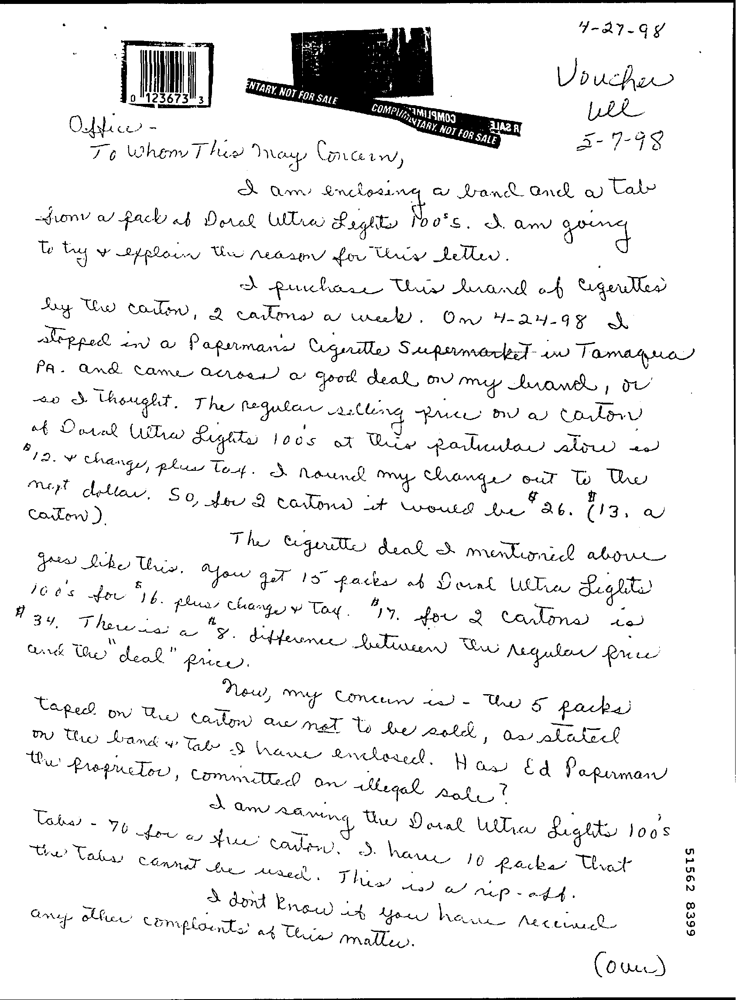 4-27-98
Voucher
5-7-98
0 123673 3
ENTARY. NOT FOR SALE
COMPLIMENTARY. NOT FOR SALE
Office -
To Whom This May Concern,
I am enclosing a band and a tab
from a pack of Doral Ultra Lights 100's. I am going
to try & explain the reason for this letter.
I purchase this brand of cigerettes
by the carton, 2 cartons a week. On 4-24-98 I
stopped in a Paperman's Cigerette Supermarket in Tamaqua
PA. and came across a good deal on my brand, or
so I thought. The regular selling price on a carton
of Doral Ultra Lights 100's at this particular store is
$12. & change, plus tax. I round my change out to the
next dollar. So, for 2 cartons it would be $26. ($13. a
carton).
The cigerette deal I mentioned above
goes like this. You get 15 packs of Doral Ultra Lights
100's for $16. plus change & tax. $17. for 2 cartons is
$34. There is a $8. difference between the regular price
and the "deal" price.
Now, my concern is - the 5 packs
taped on the carton are not to be sold, as stated
on the band & tab I have enclosed. Has Ed Paperman
the proprietor, committed an illegal sale?
I am saving the Doral Ultra Lights 100's
Tabs - 70 for a free carton. I have 10 packs that
the tabs cannot be used. This is a rip-off.
I don't know if you have received
any other complaints of this matter.
(over)
51562 8399